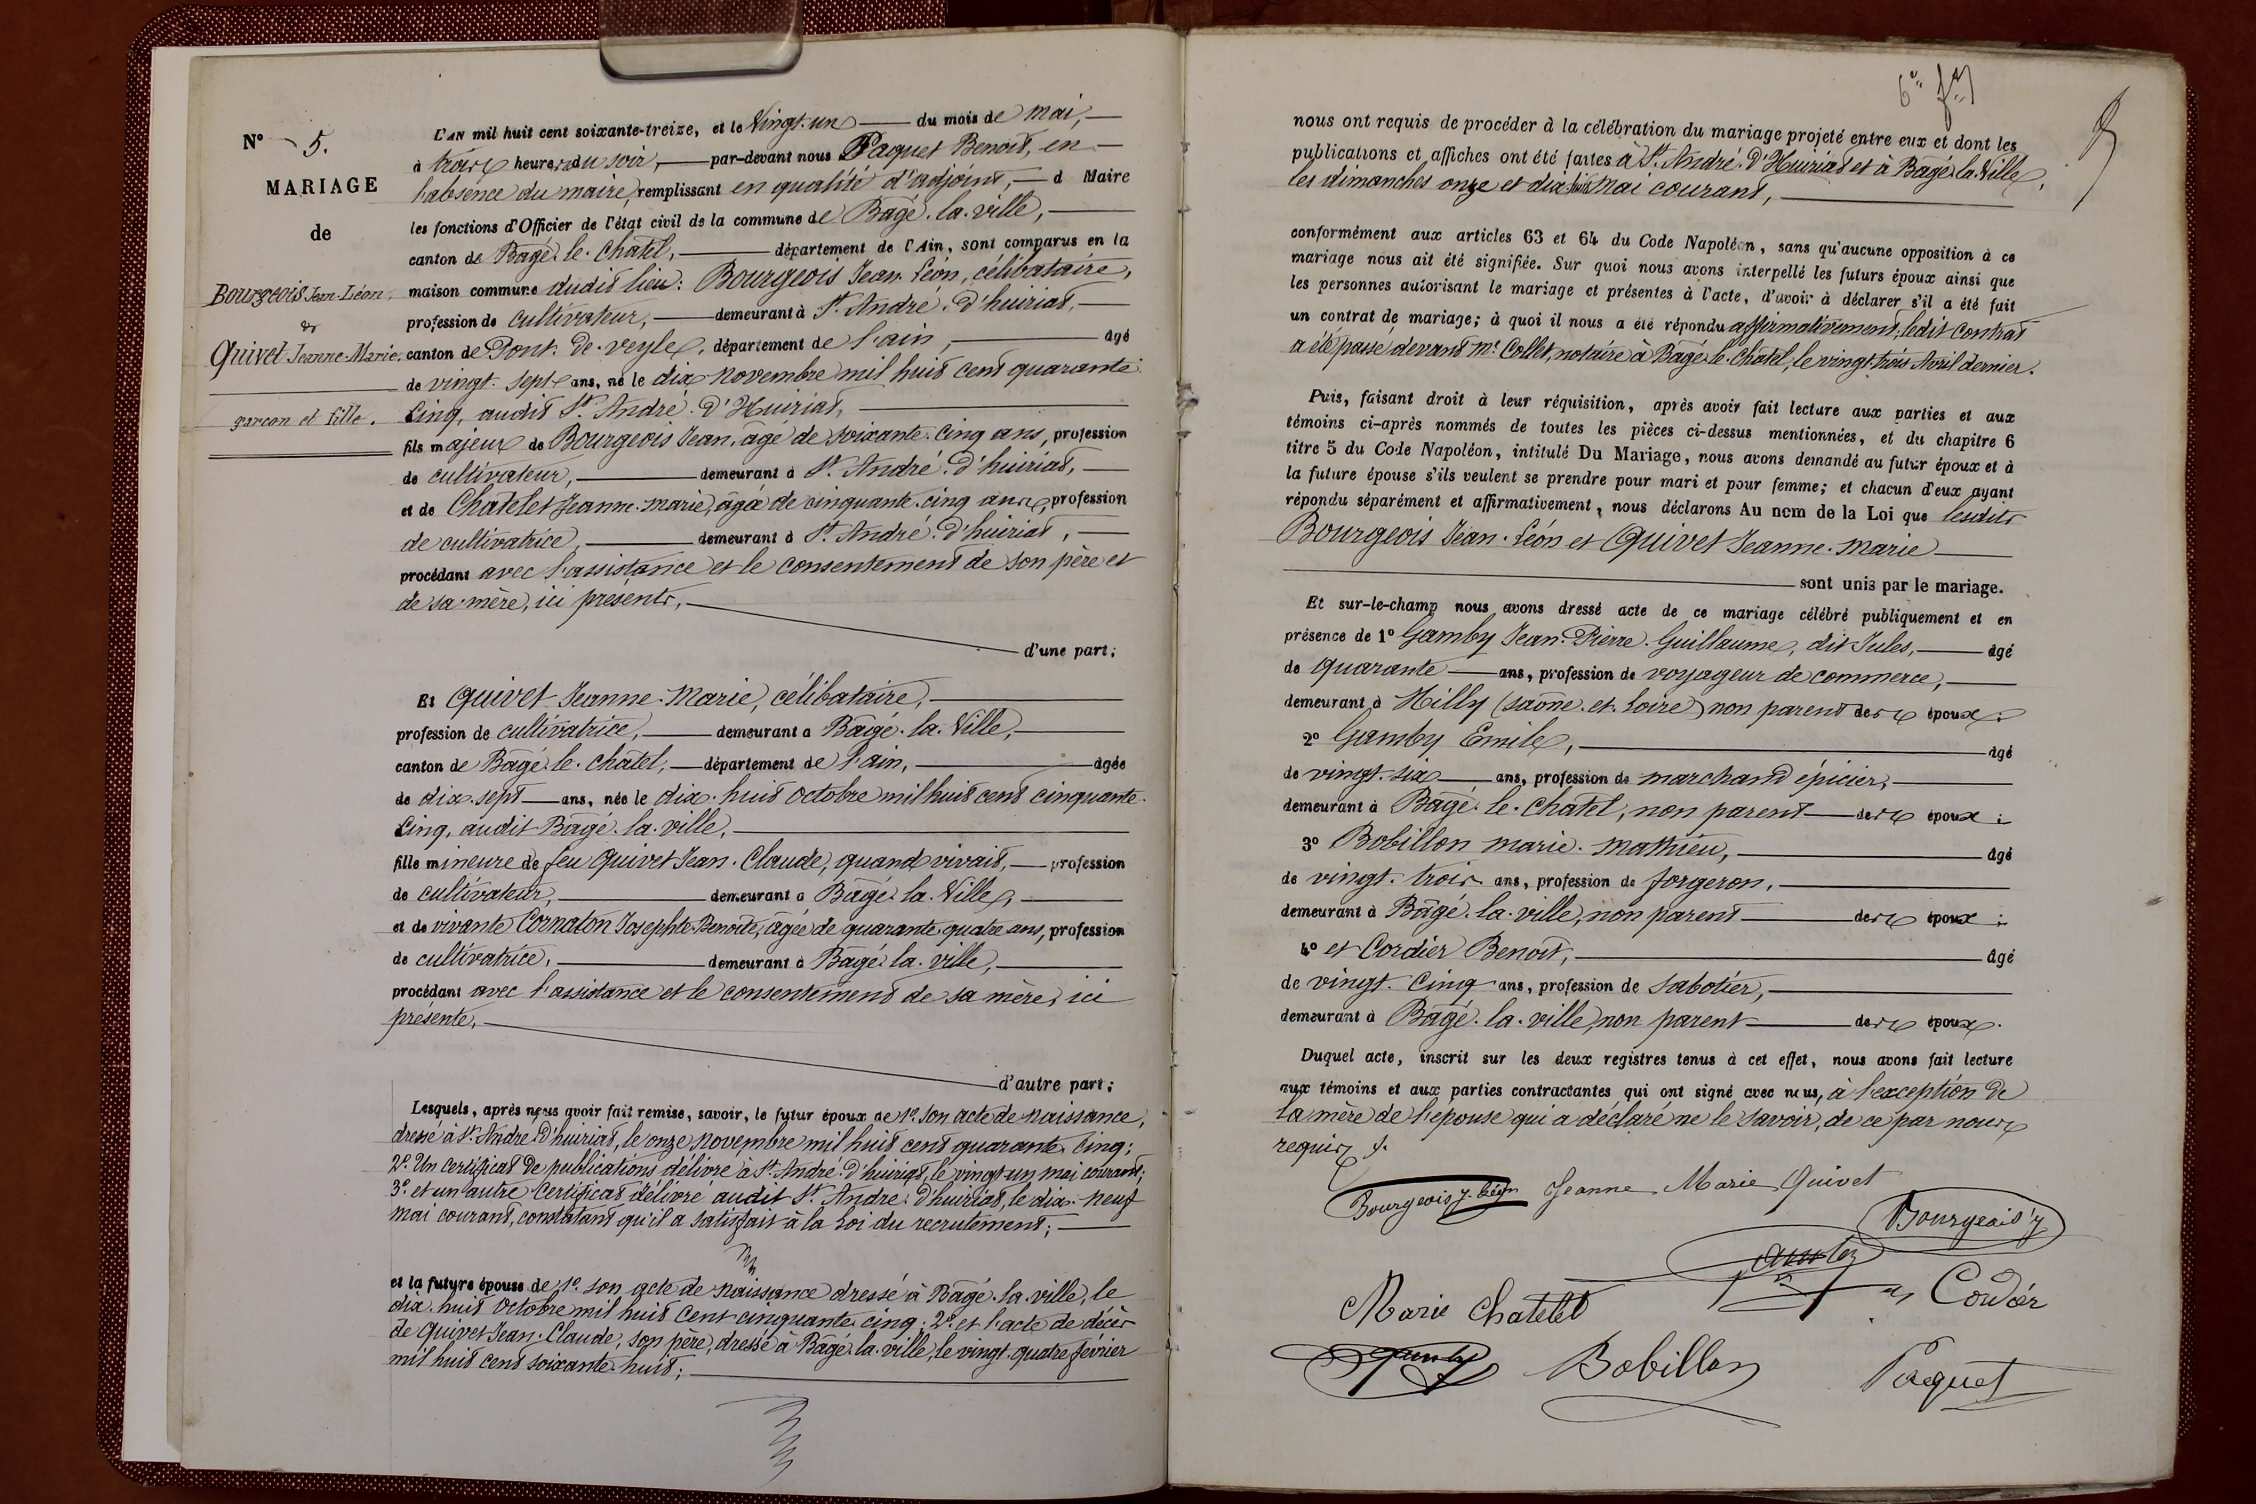 N° 5.
MARIAGE
de
Bourgeois Jean-Léon,
&
Quivet Jeanne-Marie.
garçon et fille.
L'AN mil huit cent soixante-treize, et le Vingt-un du mois de mai,
à trois heures du soir, par-devant nous Paquet Benoît, en
l'absence du maire, remplissant en qualité d'adjoint, d Maire
les fonctions d'Officier de l'état civil de la commune de Bâgé-la-ville,
canton de Bâgé-le-Châtel, département de l'Ain, sont comparus en la
maison commune dudit lieu: Bourgeois Jean-Léon, célibataire,
profession de cultivateur, demeurant à St André-D'huiriat,
canton de Pont-de-veyle, département de l'ain, âgé
de vingt-sept ans, né le dix novembre mil huit cent quarante-
Cinq, audit St André-D'Huiriat,
fils majeur de Bourgeois Jean, âgé de soixante-cinq ans, profession
de cultivateur, demeurant à St André-d'huiriat,
et de Chatelet Jeanne-marie, âgée de cinquante-cinq ans, profession
de cultivatrice, demeurant à St André-D'huiriat,
procédant avec l'assistance et le consentement de son père et
de sa mère, ici présents,
d'une part;
Et Quivet Jeanne-Marie, célibataire,
profession de cultivatrice, demeurant à Bâgé-la-Ville,
canton de Bâgé-le-Châtel, département de l'ain, âgée
de dix-sept ans, née le dix-huit Octobre mil huit cent cinquante-
Cinq, audit Bâgé-la-ville,
fille mineure de feu Quivet Jean-Claude, quand vivait, profession
de cultivateur, demeurant à Bâgé-la-Ville,
et de vivante Cornaton Josephte-Benoîte, âgée de quarante-quatre ans, profession
de cultivatrice, demeurant à Bâgé-la-ville,
procédant avec l'assistance et le consentement de sa mère, ici
présente,
d'autre part;
Lesquels, après nous avoir fait remise, savoir, le futur époux de 1° son acte de naissance,
dressé à St André-D'huiriat, le onze novembre mil huit cent quarante-cinq;
2° Un certificat de publications délivré à St André-d'huiriat, le vingt-un mai courant;
3° et un autre certificat délivré audit St André-D'huiriat, le dix-neuf
mai courant, constatant qu'il a satisfait à la Loi du recrutement;
et la future épouse de 1° son acte de naissance dressé à Bâgé-la-ville, le
dix-huit Octobre mil huit cent cinquante-cinq; 2° et l'acte de décès
de Quivet Jean-Claude, son père, dressé à Bâgé-la-ville, le vingt-quatre février
mil huit cent soixante-huit;
nous ont requis de procéder à la célébration du mariage projeté entre eux et dont les
publications et affiches ont été faites à St André-D'Huiriat et à Bâgé-la-Ville,
les dimanches onze et dix-huit mai courant,
conformément aux articles 63 et 64 du Code Napoléon, sans qu'aucune opposition à ce
mariage nous ait été signifiée. Sur quoi nous avons interpellé les futurs époux ainsi que
les personnes autorisant le mariage et présentes à l'acte, d'avoir à déclarer s'il a été fait
un contrat de mariage; à quoi il nous a été répondu affirmativement, ledit contrat
a été passé devant Me Collet, notaire à Bâgé-le-Châtel, le vingt-trois Avril dernier.
Puis, faisant droit à leur réquisition, après avoir fait lecture aux parties et aux
témoins ci-après nommés de toutes les pièces ci-dessus mentionnées, et du chapitre 6
titre 5 du Code Napoléon, intitulé Du Mariage, nous avons demandé au futur époux et à
la future épouse s'ils veulent se prendre pour mari et pour femme; et chacun d'eux ayant
répondu séparément et affirmativement, nous déclarons Au nom de la Loi que lesdits
Bourgeois Jean-Léon et Quivet Jeanne-Marie
sont unis par le mariage.
Et sur-le-champ nous avons dressé acte de ce mariage célébré publiquement et en
présence de 1° Gamby Jean-Pierre-Guillaume, dit Jules, âgé
de quarante ans, profession de voyageur de commerce,
demeurant à Milly (saône-et-Loire) non parent des époux;
2° Gamby Emile, âgé
de vingt-six ans, profession de marchand épicier,
demeurant à Bâgé-le-Châtel, non parent des époux;
3° Bobillon marie-Mathieu, âgé
de vingt-trois ans, profession de forgeron,
demeurant à Bâgé-la-ville, non parent des époux;
4° et Cordier Benoît, âgé
de vingt-cinq ans, profession de sabotier,
demeurant à Bâgé-la-ville, non parent des époux.
Duquel acte, inscrit sur les deux registres tenus à cet effet, nous avons fait lecture
aux témoins et aux parties contractantes qui ont signé avec nous, à l'exception de
la mère de l'épouse qui a déclaré ne le savoir, de ce par nous
requis.
Bourgeois J. Léon Jeanne Marie Quivet
Bourgeois J
Marie Chatelet Cordier
Gamby Bobillon Paquet